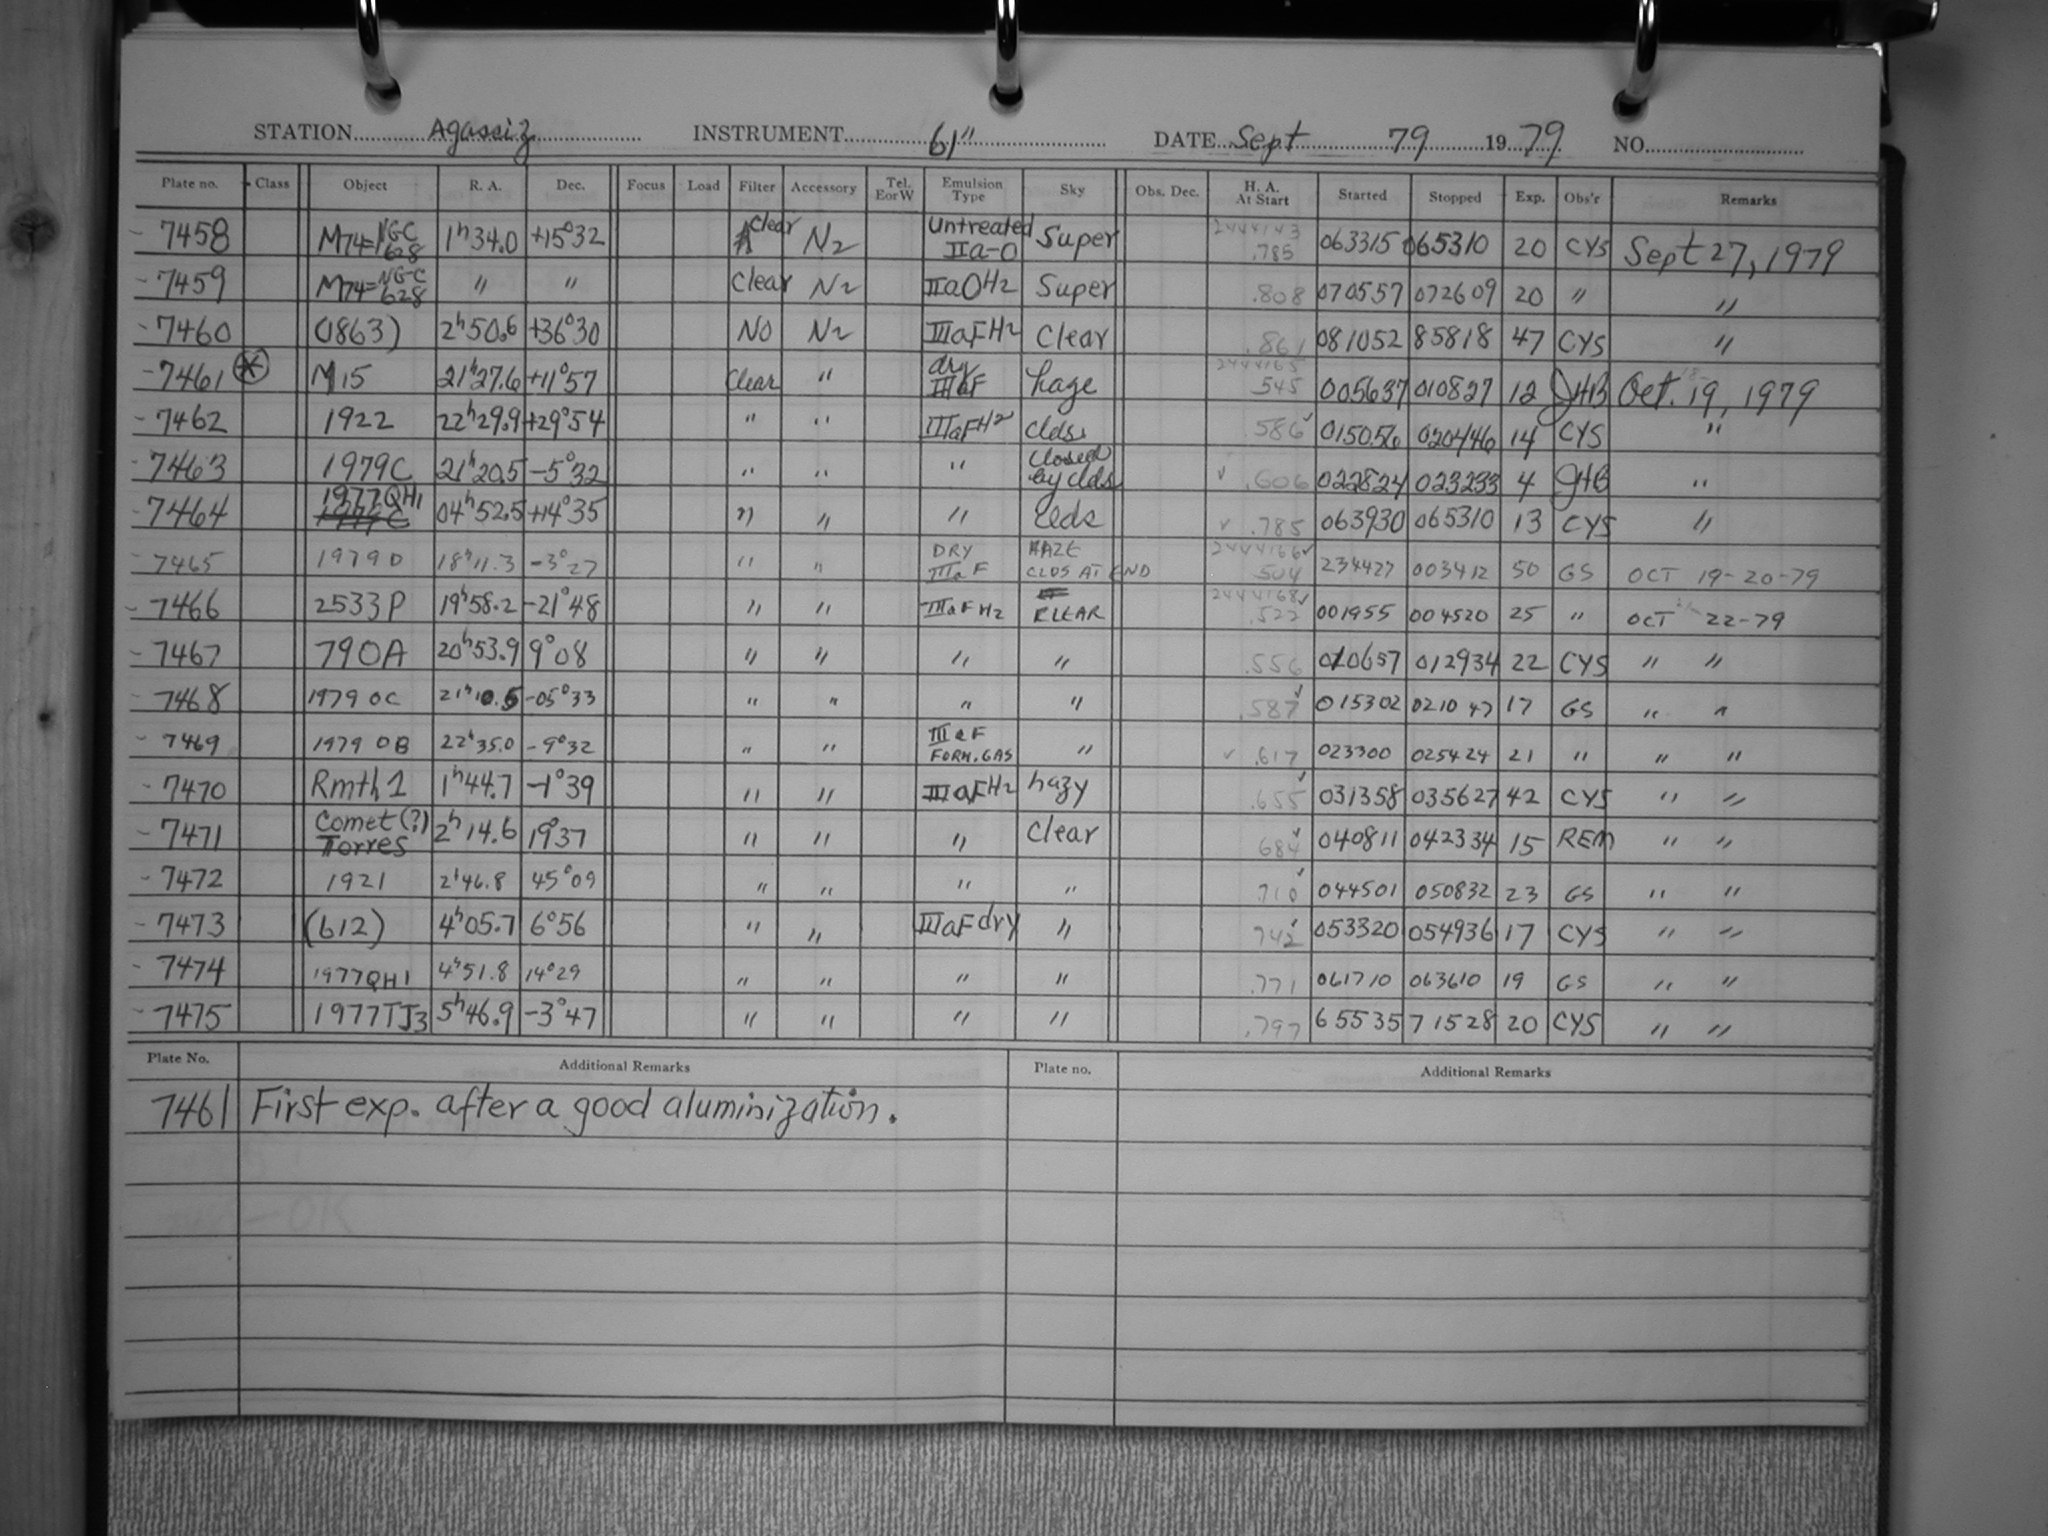 STATION Agassiz INSTRUMENT 61" DATE Sept 79 1979 NO.
Plate no. Class Object R. A. Dec. Focus Load Filter Accessory Tel. E or W Emulsion Type Sky Obs. Dec. H. A. At Start Started Stopped Exp. Obs'r Remarks
7458 M74=NGC 628 1h34.0 +15°32 Clear N2 Untreated IIa-O Super 2444143 .785 063315 065310 20 CYS Sept 27, 1979
7459 M74=NGC 628 " " Clear N2 IIaOH2 Super .808 070557 072609 20 " "
7460 (0863) 2h50.6 +36°30 NO N2 IIIaFH2 Clear .861 081052 85818 47 CYS "
7461 * M15 21h27.6 +11°57 Clear " dry IIIaF haze 2444165 .545 005637 010827 12 JHB Oct. 19, 1979
7462 1922 22h29.9 +29°54 " " IIIaFH2 clds .586 015056 020446 14 CYS "
7463 1979C 21h20.5 -5°32 " " " Closed by clds .606 022824 023233 4 JHB "
7464 1977QH1 04h52.5 +14°35 " " " Clds .785 063930 065310 13 CYS "
7465 1979 O 18h11.3 -3°27 " " DRY IIIaF HAZE CLDS AT END 2444166 .504 234427 003412 50 GS OCT 19-20-79
7466 2533P 19h58.2 -21°48 " " IIIaFH2 CLEAR 2444168 .522 001955 004520 25 " OCT 22-79
7467 790A 20h53.9 9°08 " " " " .556 010657 012934 22 CYS " "
7468 1979 OC 21h10.5 -05°33 " " " " .587 015302 021047 17 GS " "
7469 1979 OB 22h35.0 -9°32 " " IIIaF FORM. GAS " .617 023300 025424 21 " " "
7470 Rmth 1 1h44.7 -1°39 " " IIIaFH2 hazy .655 031358 035627 42 CYS " "
7471 Comet(?) Torres 2h14.6 19°37 " " " Clear 684 040811 042334 15 REM " "
7472 1921 2h46.8 45°09 " " " " .710 044501 050832 23 GS " "
7473 (612) 4h05.7 6°56 " " IIIaF dry " .742 053320 054936 17 CYS " "
7474 1977QH1 4h51.8 14°29 " " " " .771 061710 063610 19 GS " "
7475 1977TJ3 5h46.9 -3°47 " " " " .797 65535 71528 20 CYS " "
Plate No. Additional Remarks Plate no. Additional Remarks
7461 First exp. after a good aluminization.